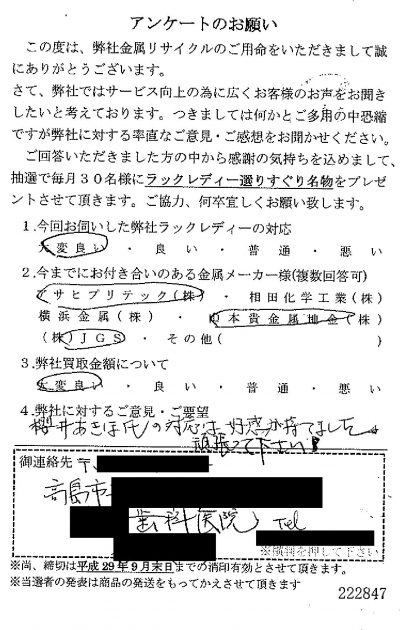 アンケートのお願い
この度は、弊社金属リサイクルのご用命をいただきまして誠
にありがとうございます。
さて、弊社ではサービス向上の為に広くお客様のお声をお聞き
したいと考えております。つきましては何かとご多用の中恐縮
ですが弊社に対する率直なご意見・ご感想をお聞かせください。
ご回答いただきました方の中から感謝の気持ちを込めまして、
抽選で毎月30名様にラックレディー選りすぐり名物をプレゼ
ントさせて頂きます。ご協力、何卒宜しくお願い致します。
1.今回お伺いした弊社ラックレディーの対応
大変良い ・ 良い ・ 普通 ・ 悪い
2.今までにお付き合いのある金属メーカー様(複数回答可)
アサヒプリテック(株) ・ 相田化学工業(株)
横浜金属(株) ・ 日本貴金属地金(株)
(株)JGS ・ その他( )
3.弊社買取金額について
大変良い ・ 良い ・ 普通 ・ 悪い
4.弊社に対するご意見・ご要望
櫻井あきほ氏の対応は、好感が持てました。
頑張って下さい!
御連絡先 〒
高島市
歯科医院 Tel
※横判を押して下さい
※尚、締切は平成29年9月末日までの消印有効とさせて頂きます
※当選者の発表は商品の発送をもってかえさせて頂きます
222847